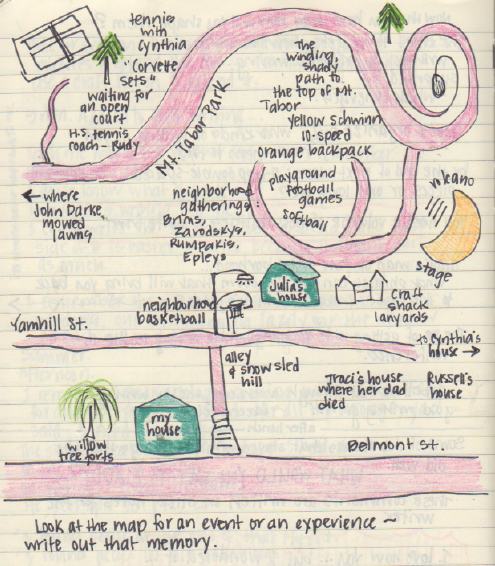 tennis
with
Cynthia
"Corvette
Sets"
waiting for
an open
court
H.S. tennis
coach - Rudy
Mt. Tabor Park
The
winding,
shady
path to
the top of Mt.
Tabor
Yellow Schwinn
10-speed
orange backpack
← where
John Darke
mowed
lawns
neighborhood
gatherings:
Brims,
Zavodskys,
Rumpakis,
Epleys
playground
football
games
softball
volkano
stage
Julia's
house
craft
shack
lanyards
neighborhood
basketball
Yamhill St.
to Cynthia's
house →
alley
& snow sled
hill
Traci's house
where her dad
died
Russell's
house
willow
tree forts
my
house
Belmont St.
Look at the map for an event or an experience ~
write out that memory.